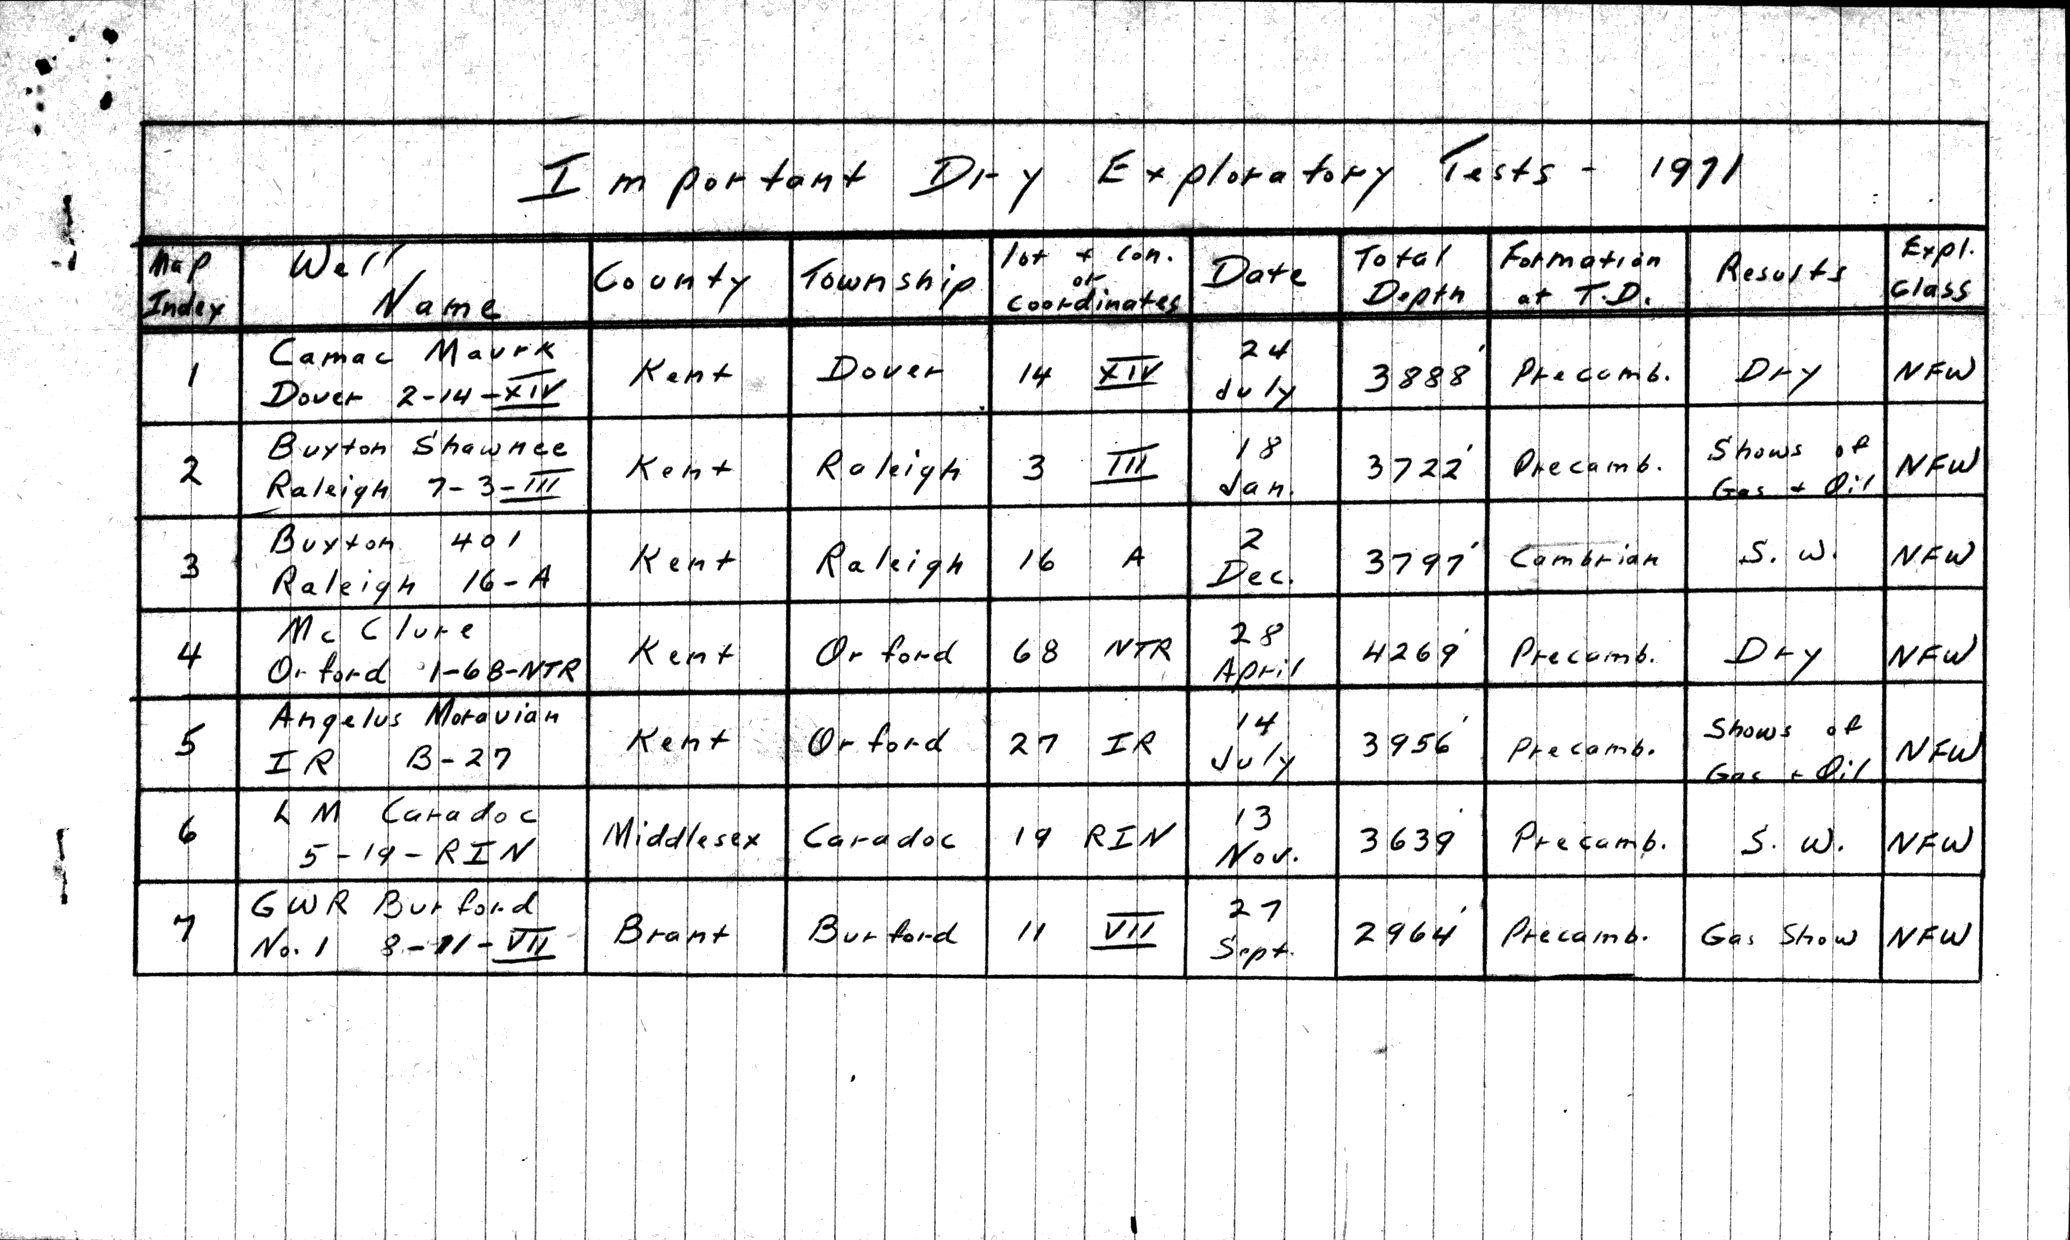 Important Dry Exploratory Tests - 1971
Map Index | Well Name | County | Township | lot + Con. or coordinates | Date | Total Depth | Formation at T.D. | Results | Expl. Class
1 | Camac Maurk Dover 2-14-XIV | Kent | Dover | 14 XIV | 24 July | 3888' | Precamb. | Dry | NFW
2 | Buxton Shawnee Raleigh 7-3-III | Kent | Raleigh | 3 III | 18 Jan. | 3722' | Precamb. | Shows of Gas + Oil | NFW
3 | Buxton 401 Raleigh 16-A | Kent | Raleigh | 16 A | 2 Dec. | 3797' | Cambrian | S. W. | NFW
4 | Mc Clure Orford 1-68-NTR | Kent | Orford | 68 NTR | 28 April | 4269' | Precamb. | Dry | NFW
5 | Angelus Moravian IR B-27 | Kent | Orford | 27 IR | 14 July | 3956' | Precamb. | Shows of Gas + Oil | NFW
6 | L M Caradoc 5-19-RIN | Middlesex | Caradoc | 19 RIN | 13 Nov. | 3639' | Precamb. | S. W. | NFW
7 | GWR Burford No. 1 8-11-VII | Brant | Burford | 11 VII | 27 Sept. | 2964' | Precamb. | Gas Show | NFW